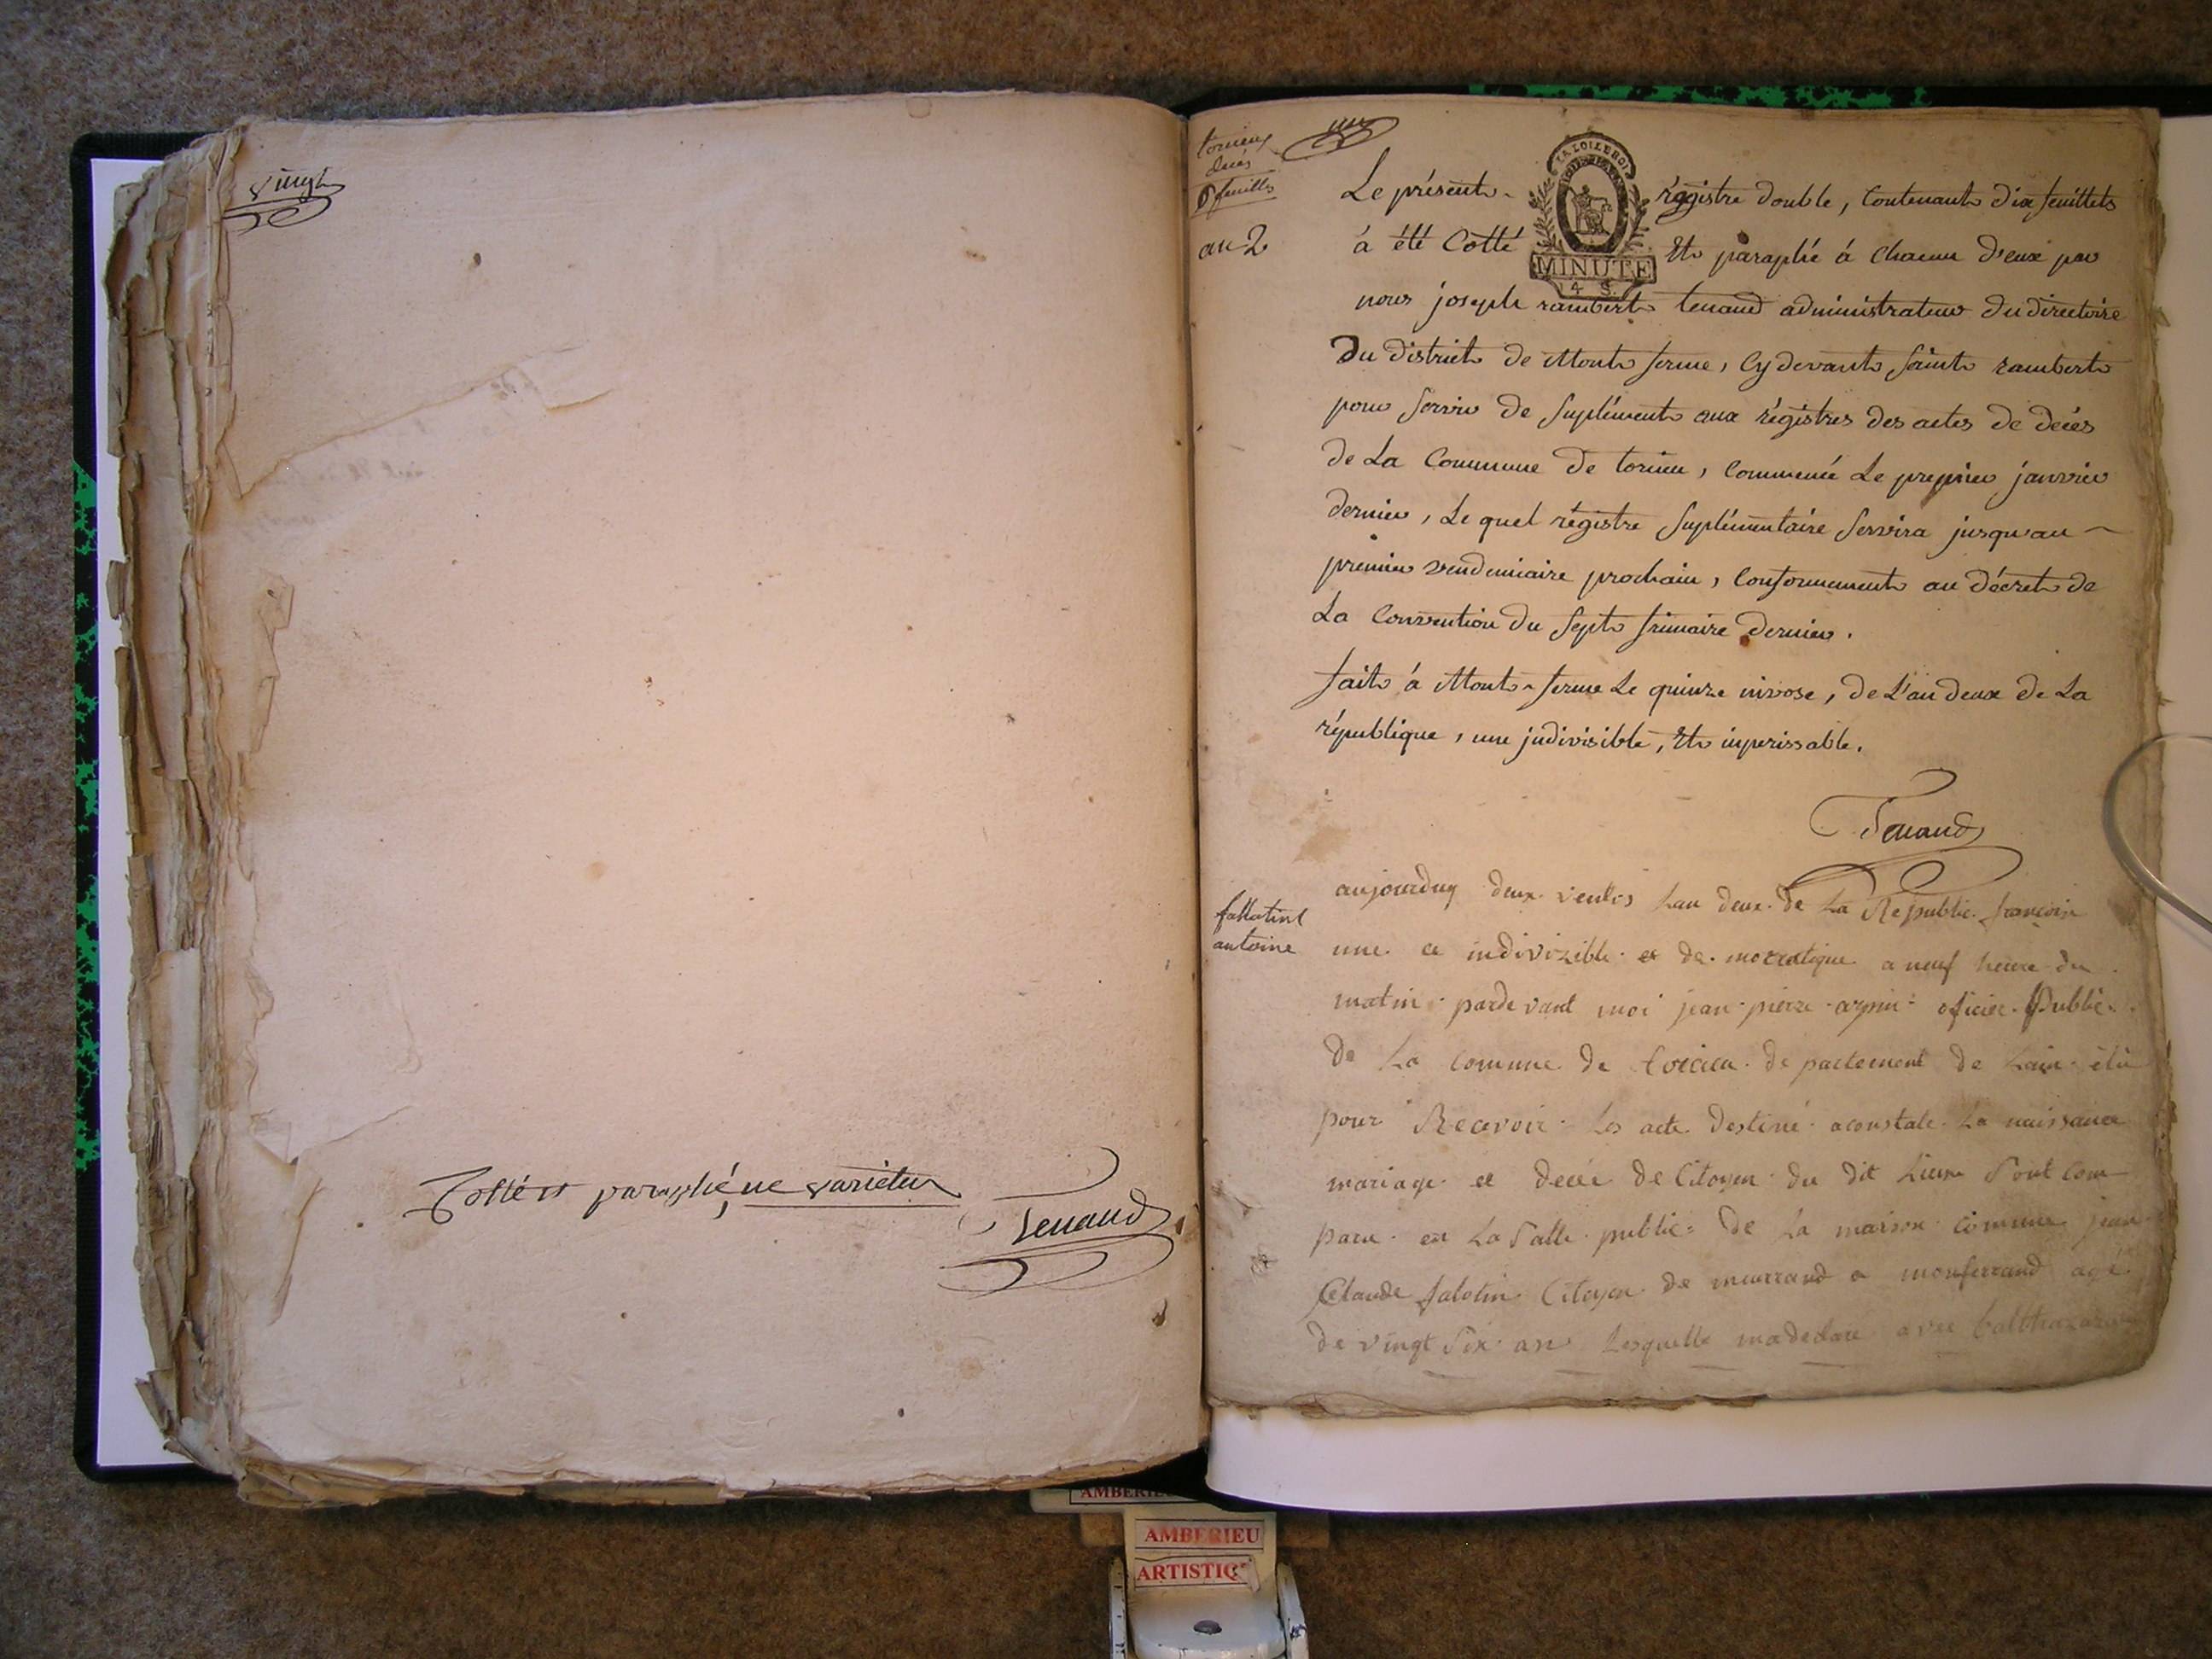 vingt
Cotté et paraphé, ne varietur
Tenaud
torcieu
decés
6 feuilles
an 2
un
LA LOI LE ROI
MINUTE
4 S.
Le présent régistre double, Contenant dix feuillets
à été Cotté Et paraphé á Chacun d'eux par
nous joseph rambert tenand administrateur du directoire
Du district de Mont ferme, Cy devant Saint rambert
pour Servir de Suplément aux régistres des actes de décés
de La Commune de torcieu, Commencé Le premier janvier
dernier, Le quel régistre Suplémentaire Servira jusqu'au
premier vendemiaire prochain, Conformement au décret de
La Convention du Sept frimaire dernier.
fait á Mont-ferme Le quinze nivose, de L'an deux de La
république, une indivisible, Et imperissable.
Tenand
fallatint
antoine
aujourduy deux ventos Lan deux de La Republic francoise
une et indivizible et de mocratique a neuf heure du
matin pardevant moi jean pierre officier Public
de La comune de torcieu de partement de Lain élu
pour Recevoir Les acte Destiné aconstate La naissance
mariage et decée de Citoyen du dit Lieux Sont Com
paru en La Salle public de La maison comune jean
Claude falotin Citoyen de a monferrand agé
de vingt Six ans Lesquelle madeclaré avec balthazard
AMBERIEU
AMBERIEU
ARTISTIQ